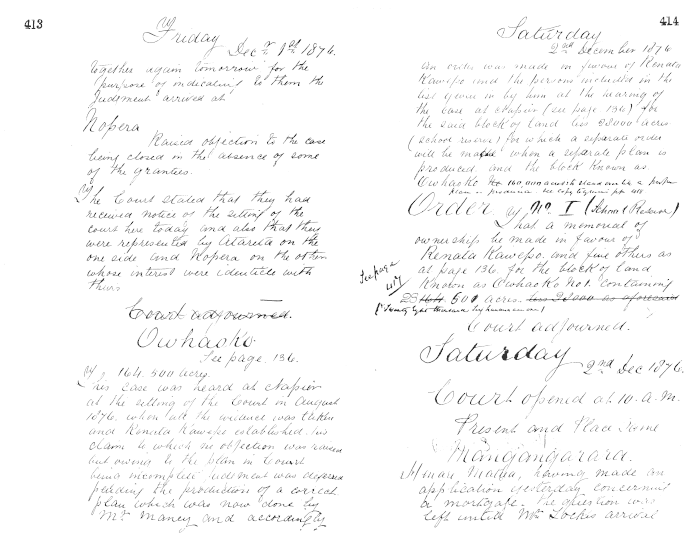 413
Friday
Decr 1st 1876.
together again tomorrow for the
purpose of indicating to them the
Judgment arrived at
Nopera
Raised objection to the case
being closed in the absence of some
of the grantees.
The Court stated that they had
received notice of the sitting of the
court here today and also that they
were represented by Atareta on the
one side and Nopera on the other
whose interest were identicle with
theirs
Court adjourned.
Owhaoko
See page 136.
164.500 acres.
This case was heard at Napier
at the sitting of the Court on August
1876. when all the evidence was taken
and Renata Kawepo established his
claim to which no objection was raised
but owing to the plan in Court
being incomplete Judgment was deferred
pending the production of a correct
plan which was now done by
Mr. Maney and accordingly
414
Saturday
2nd December 1876
An order was made in favour of Renata
Kawepo and the persons included in the
list given in by him at the hearing of
the case at Napier (see page 136) for
the said block of land less 28000 acres
(school reserve) for which a separate order
will be made when a separate plan is
produced and the block known as
Owhaoko
Order No. I (School Reserve)
That a memorial of
ownership be made in favour of
Renata Kawepo. and five others as
at page 136. for the block of land
known as Owhaoko No 1. containing
See page
417
28 164.500 acres. less 28000 as aforesaid
(Twenty eight thousand five hundred acres)
Court adjourned.
Saturday
2nd Dec 1876.
Court opened at 10. a.m.
Present and Place same
Mangangarara.
having made an
application yesterday concerning
a mortgage. the question was
left until Mr Lockes arrival